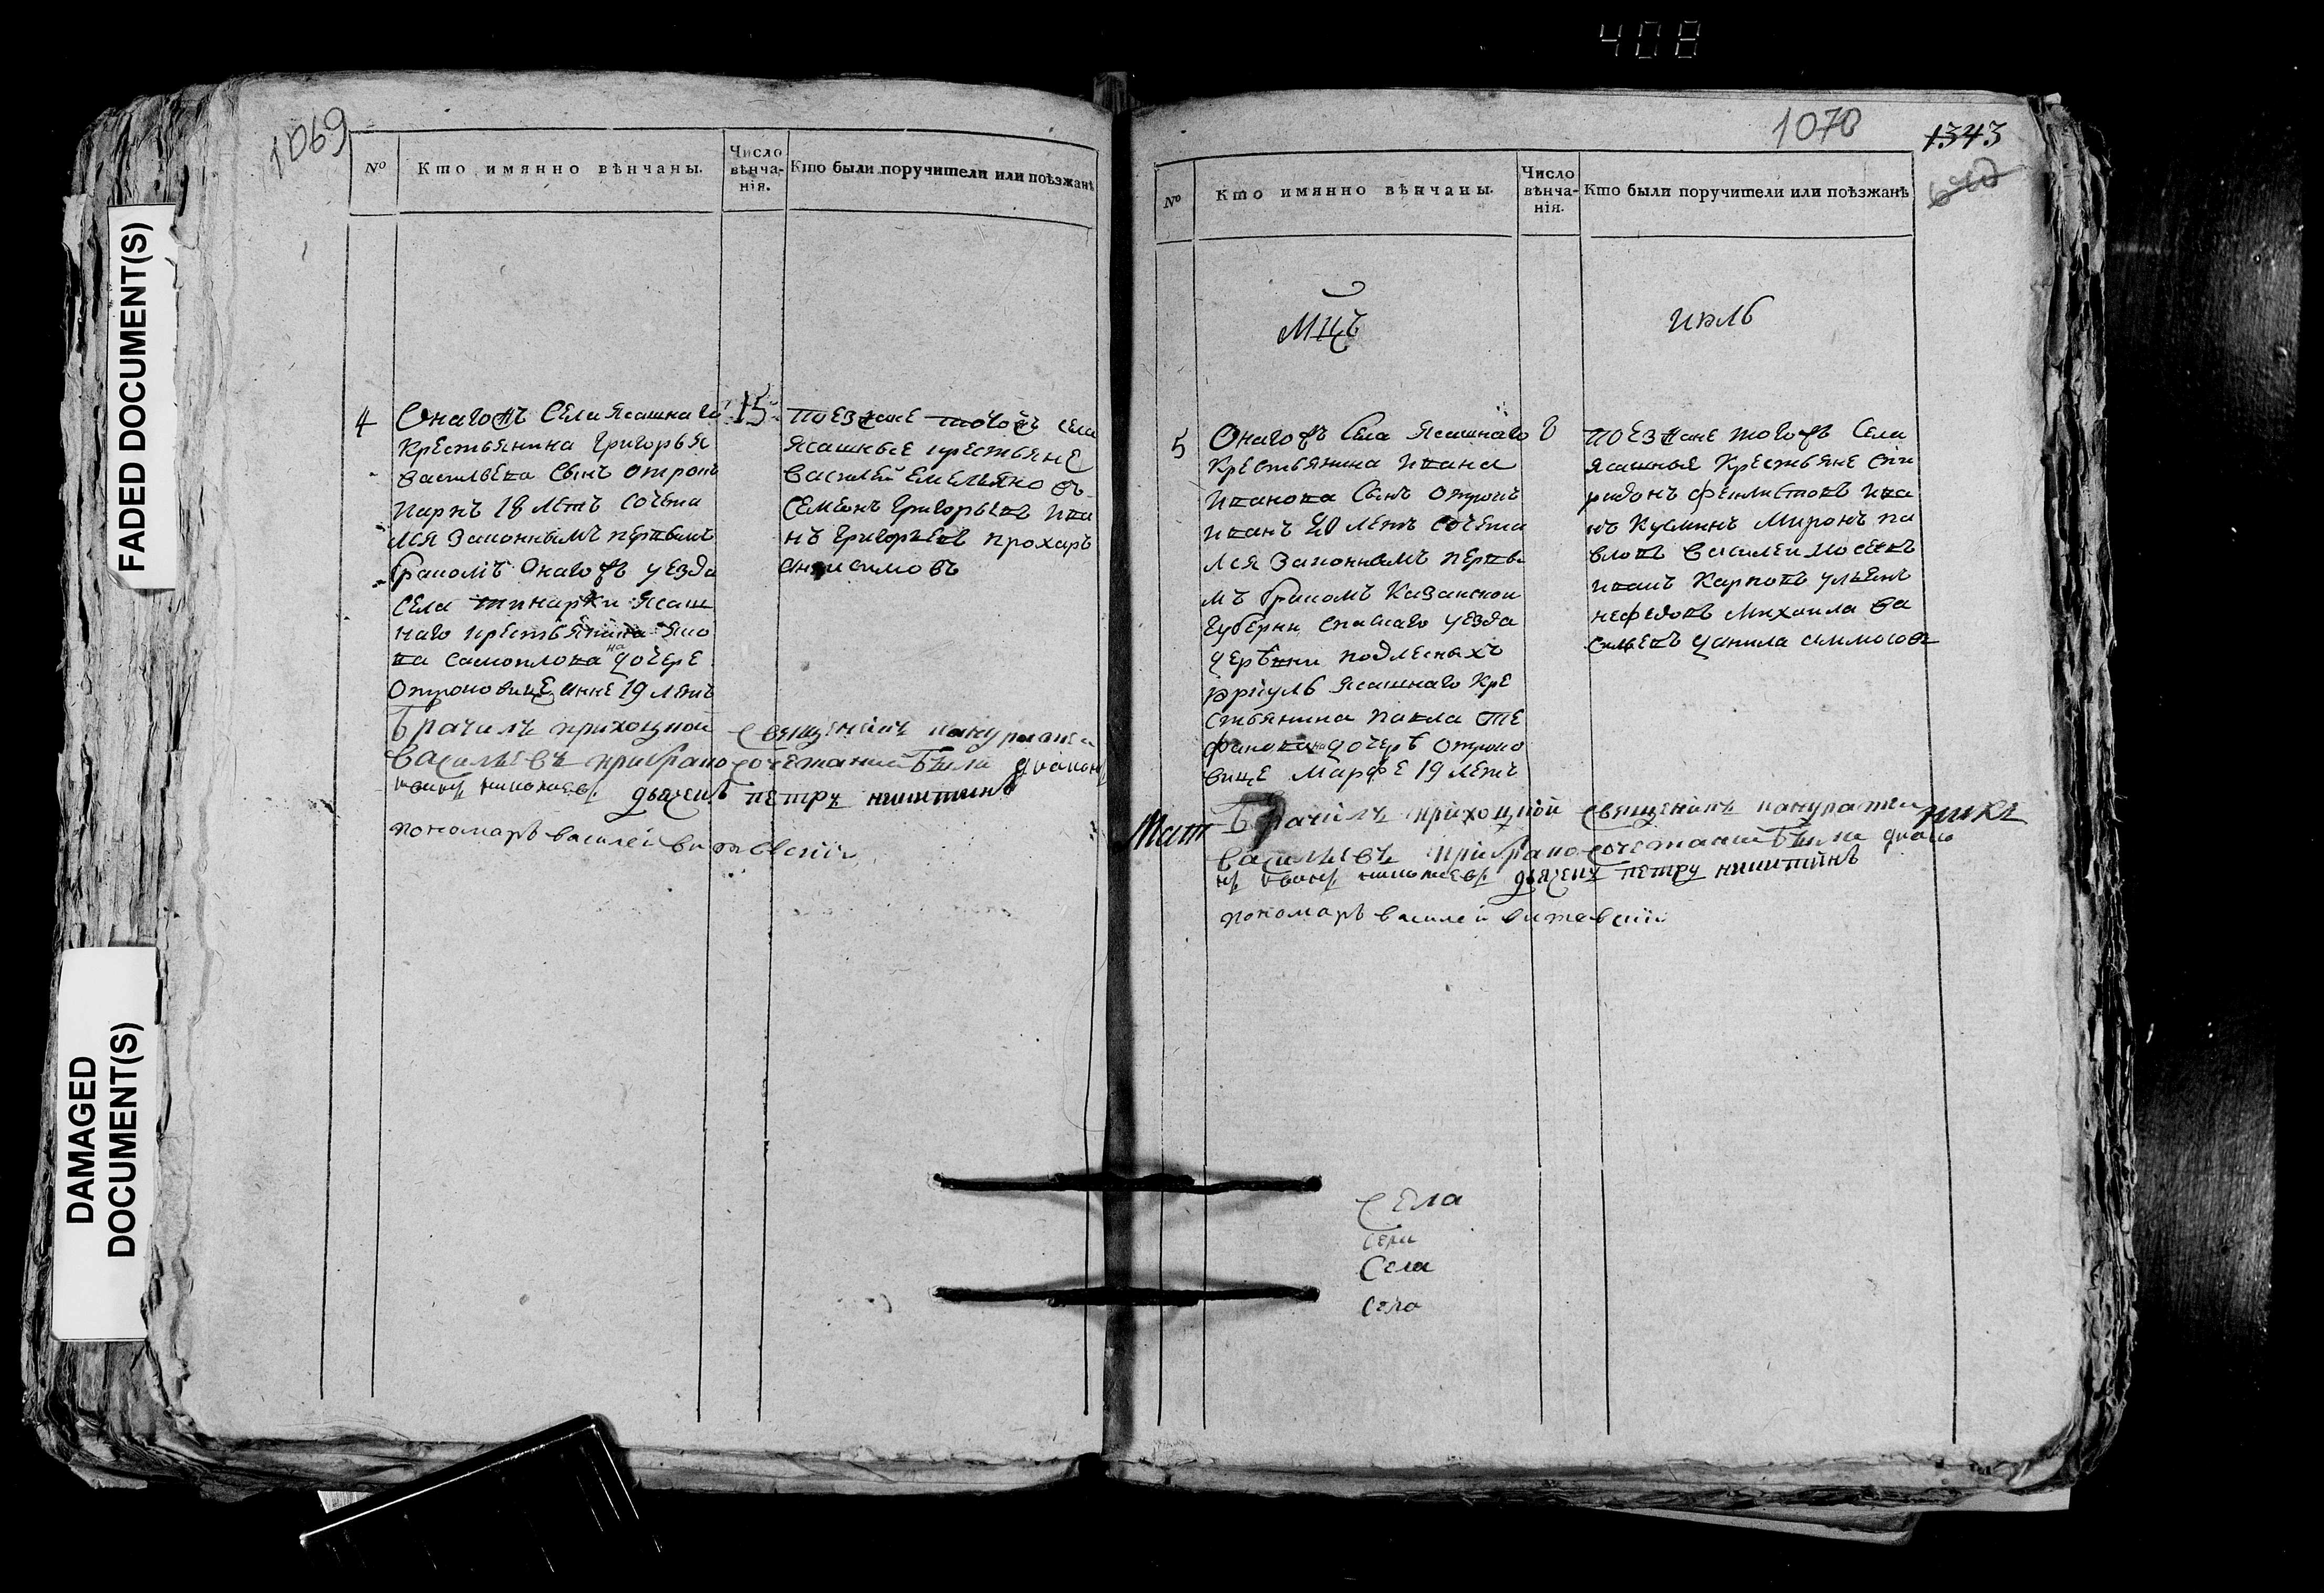 408
FADED DOCUMENT(S)
DAMAGED
DOCUMENT(S)
1069
№ Кто имянно вѣнчаны. Число вѣнча-нія. Кто были поручители или поѣзжанѣ
4 Онагожъ Села Ясашнаго 15
крестьянина Григорья
васильева Сынъ отрокъ
18 летъ сочета
лся законнымъ первымъ
бракомъ Онагожъ уезда
Села ясаш
наго крестьянина яко
ва на дочере
отроковице анне 19 летъ
поезжане тогожъ села
ясашные крестьяне
василей емельяновъ
семионъ григорьевъ ива
нъ григорьевъ прохаръ
анисимовъ
Брачилъ приходной священникъ
васильевъ при браносочетании были диаконъ
иванъ николаевъ дьячекъ петръ никитинъ
пономарь василей
1070
1343
№ Кто имянно вѣнчаны. Число вѣнча-нія. Кто были поручители или поѣзжанѣ
Мцъ июль
5 Онагожъ Села Ясашнаго 8
крестьянина ивана
иванова Сынъ отрокъ
иванъ 20 летъ сочета
лся законнымъ первы
мъ бракомъ Казанской
губерни спаскаго уезда
деревни подлесныхъ
ясашнаго кре
стьянина павла сте
фанова на дочерѣ отроко
вице марфе 19 летъ
поезжане тогожъ Села
ясашные крестьяне спи
ридонъ феилистовъ ива
нъ Кузминъ Миронъ па
вловъ василеи
иванъ Карповъ ульянъ
нефедовъ михаила ва
сильевъ данила
Брачилъ приходной священникъ
васильевъ при браносочетании были диако
нъ иванъ николаевъ дьячекъ петръ никитинъ
пономарь василей
Села
Села
Села
Села